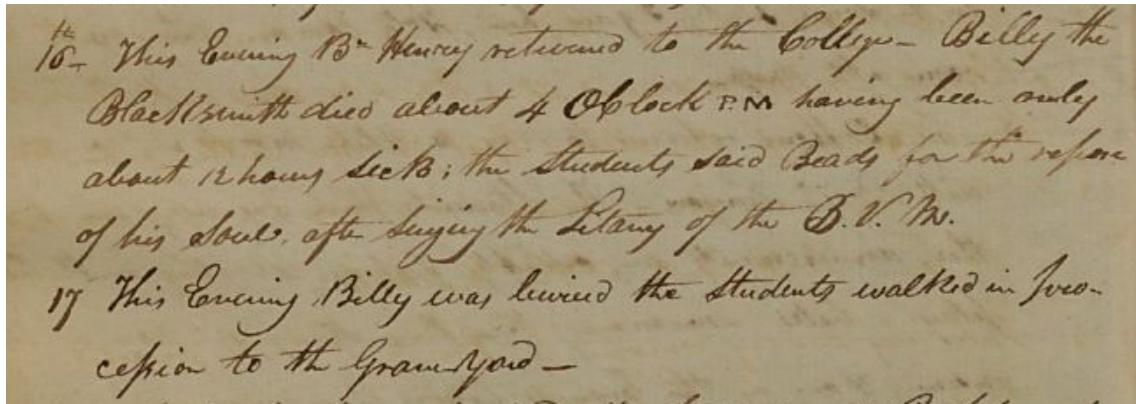 16th This Evening Br Henry returned to the College – Billy the
Blacksmith died about 4 OClock P.M having been only
about 12 hours sick; the Students said Beads for the repose
of his Soul, after singing the Litany of the B. V. M.
17 This Evening Billy was buried the Students walked in pro-
cession to the Grave-yard –